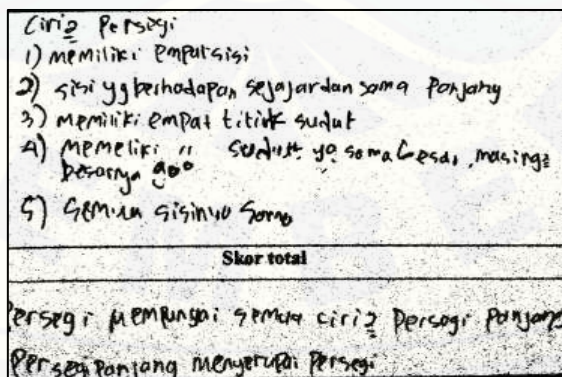 Ciri2 Persegi
1) memiliki empat sisi
2) sisi yg berhadapan sejajar dan sama Panjang
3) memiliki empat titik sudut
4) memeliki " sudut yg sama besar, masing2
besarnya 90°
5) Semua sisinya sama
Skor total
Persegi mempunyai semua ciri2 Persegi Panjang
Persegi Panjang menyerupai Persegi